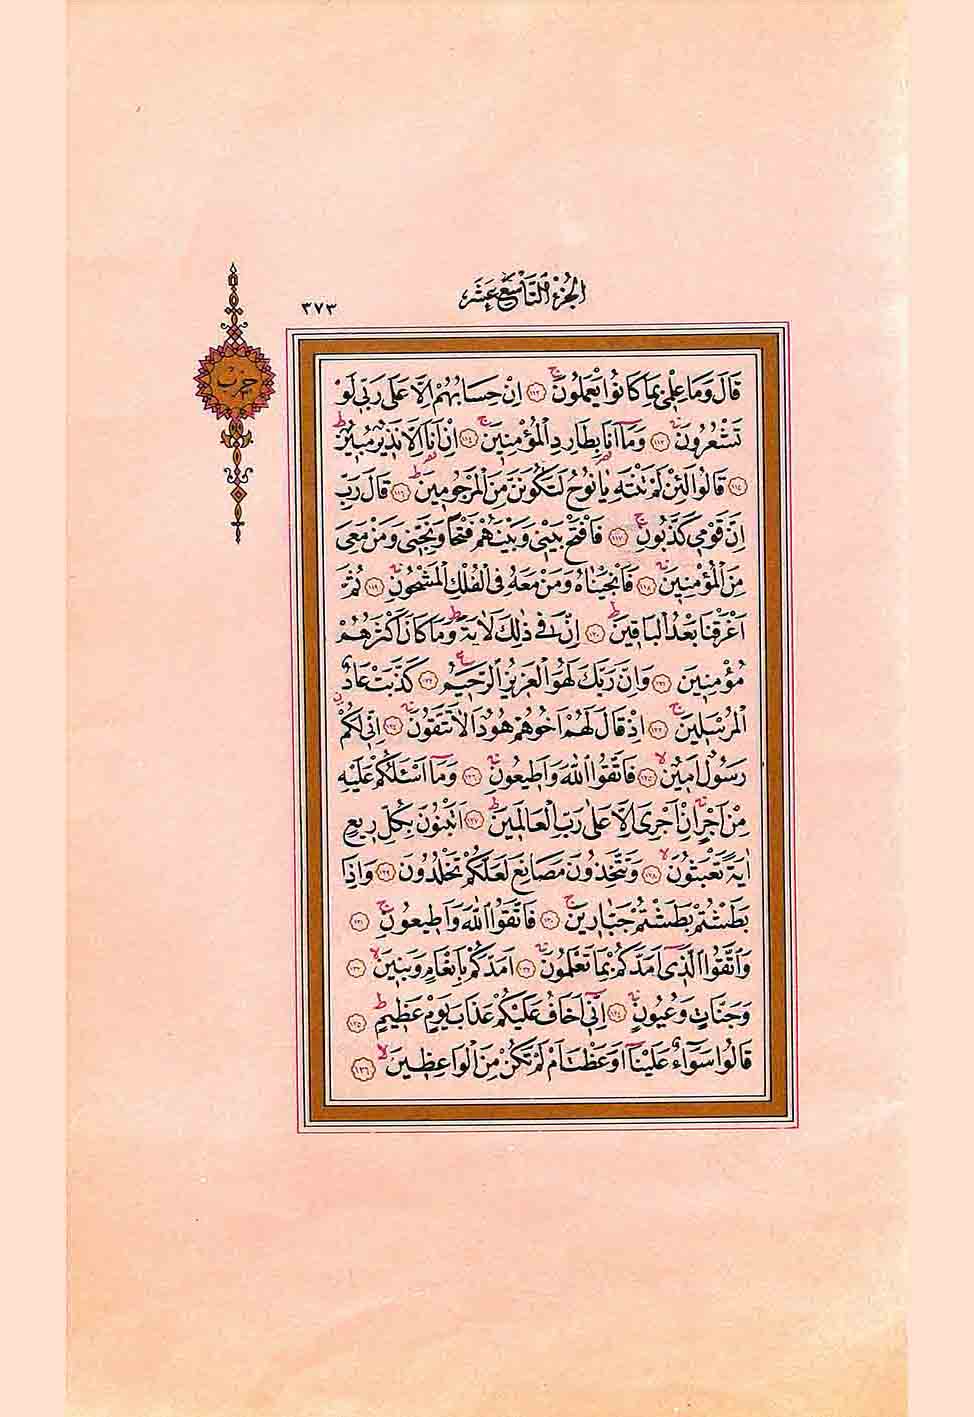 الجزء التاسع عشر
٣٧٣
حزب
قَالَ وَمَا عِلْمٖي بِمَا كَانُوا يَعْمَلُونَۚ ﴿١١٢﴾ اِنْ حِسَابُهُمْ اِلَّا عَلٰى رَبّٖي لَوْ
تَشْعُرُونَۚ ﴿١١٣﴾ وَمَٓا اَنَا بِطَارِدِ الْمُؤْمِنٖينَۚ ﴿١١٤﴾ اِنْ اَنَا اِلَّا نَذٖيرٌ مُبٖينٌۜ
﴿١١٥﴾ قَالُوا لَئِنْ لَمْ تَنْتَهِ يَا نُوحُ لَتَكُونَنَّ مِنَ الْمَرْجُومٖينَۜ ﴿١١٦﴾ قَالَ رَبِّ
اِنَّ قَوْمٖي كَذَّبُونِۚ ﴿١١٧﴾ فَافْتَحْ بَيْنٖي وَبَيْنَهُمْ فَتْحًا وَنَجِّنٖي وَمَنْ مَعِيَ
مِنَ الْمُؤْمِنٖينَ ﴿١١٨﴾ فَاَنْجَيْنَاهُ وَمَنْ مَعَهُ فِي الْفُلْكِ الْمَشْحُونِۚ ﴿١١٩﴾ ثُمَّ
اَغْرَقْنَا بَعْدُ الْبَاقٖينَۜ ﴿١٢٠﴾ اِنَّ فٖي ذٰلِكَ لَاٰيَةًۜ وَمَا كَانَ اَكْثَرُهُمْ
مُؤْمِنٖينَ ﴿١٢١﴾ وَاِنَّ رَبَّكَ لَهُوَ الْعَزٖيزُ الرَّحٖيمُ ﴿١٢٢﴾ كَذَّبَتْ عَادٌ
الْمُرْسَلٖينَۚ ﴿١٢٣﴾ اِذْ قَالَ لَهُمْ اَخُوهُمْ هُودٌ اَلَا تَتَّقُونَۚ ﴿١٢٤﴾ اِنّٖي لَكُمْ
رَسُولٌ اَمٖينٌۙ ﴿١٢٥﴾ فَاتَّقُوا اللّٰهَ وَاَطٖيعُونِۚ ﴿١٢٦﴾ وَمَٓا اَسْـَٔلُكُمْ عَلَيْهِ
مِنْ اَجْرٍۚ اِنْ اَجْرِيَ اِلَّا عَلٰى رَبِّ الْعَالَمٖينَۜ ﴿١٢٧﴾ اَتَبْنُونَ بِكُلِّ رٖيعٍ
اٰيَةً تَعْبَثُونَۙ ﴿١٢٨﴾ وَتَتَّخِذُونَ مَصَانِعَ لَعَلَّكُمْ تَخْلُدُونَ ﴿١٢٩﴾ وَاِذَا
بَطَشْتُمْ بَطَشْتُمْ جَبَّارٖينَۚ ﴿١٣٠﴾ فَاتَّقُوا اللّٰهَ وَاَطٖيعُونِۚ ﴿١٣١﴾
وَاتَّقُوا الَّذٖٓي اَمَدَّكُمْ بِمَا تَعْلَمُونَۚ ﴿١٣٢﴾ اَمَدَّكُمْ بِاَنْعَامٍ وَبَنٖينَۙ ﴿١٣٣﴾
وَجَنَّاتٍ وَعُيُونٍۚ ﴿١٣٤﴾ اِنّٖٓي اَخَافُ عَلَيْكُمْ عَذَابَ يَوْمٍ عَظٖيمٍۜ ﴿١٣٥﴾
قَالُوا سَوَٓاءٌ عَلَيْنَٓا اَوَعَظْتَ اَمْ لَمْ تَكُنْ مِنَ الْوَاعِظٖينَۙ ﴿١٣٦﴾